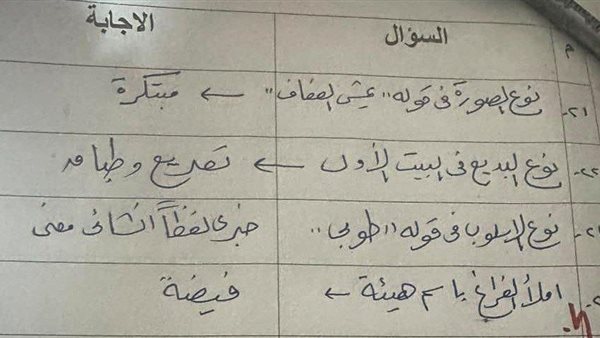 م السؤال الاجابة
٢١- نوع الصورة فى قوله "عيش العفاف" ← مبتكرة
٢٢- نوع البديع فى البيت الأول ← تصريع وطباق
نوع الاسلوب فى قوله "طوبى" خبرى لفظاً انشائى معنى
املأ الفراغ باسم هيئة ← فيضة